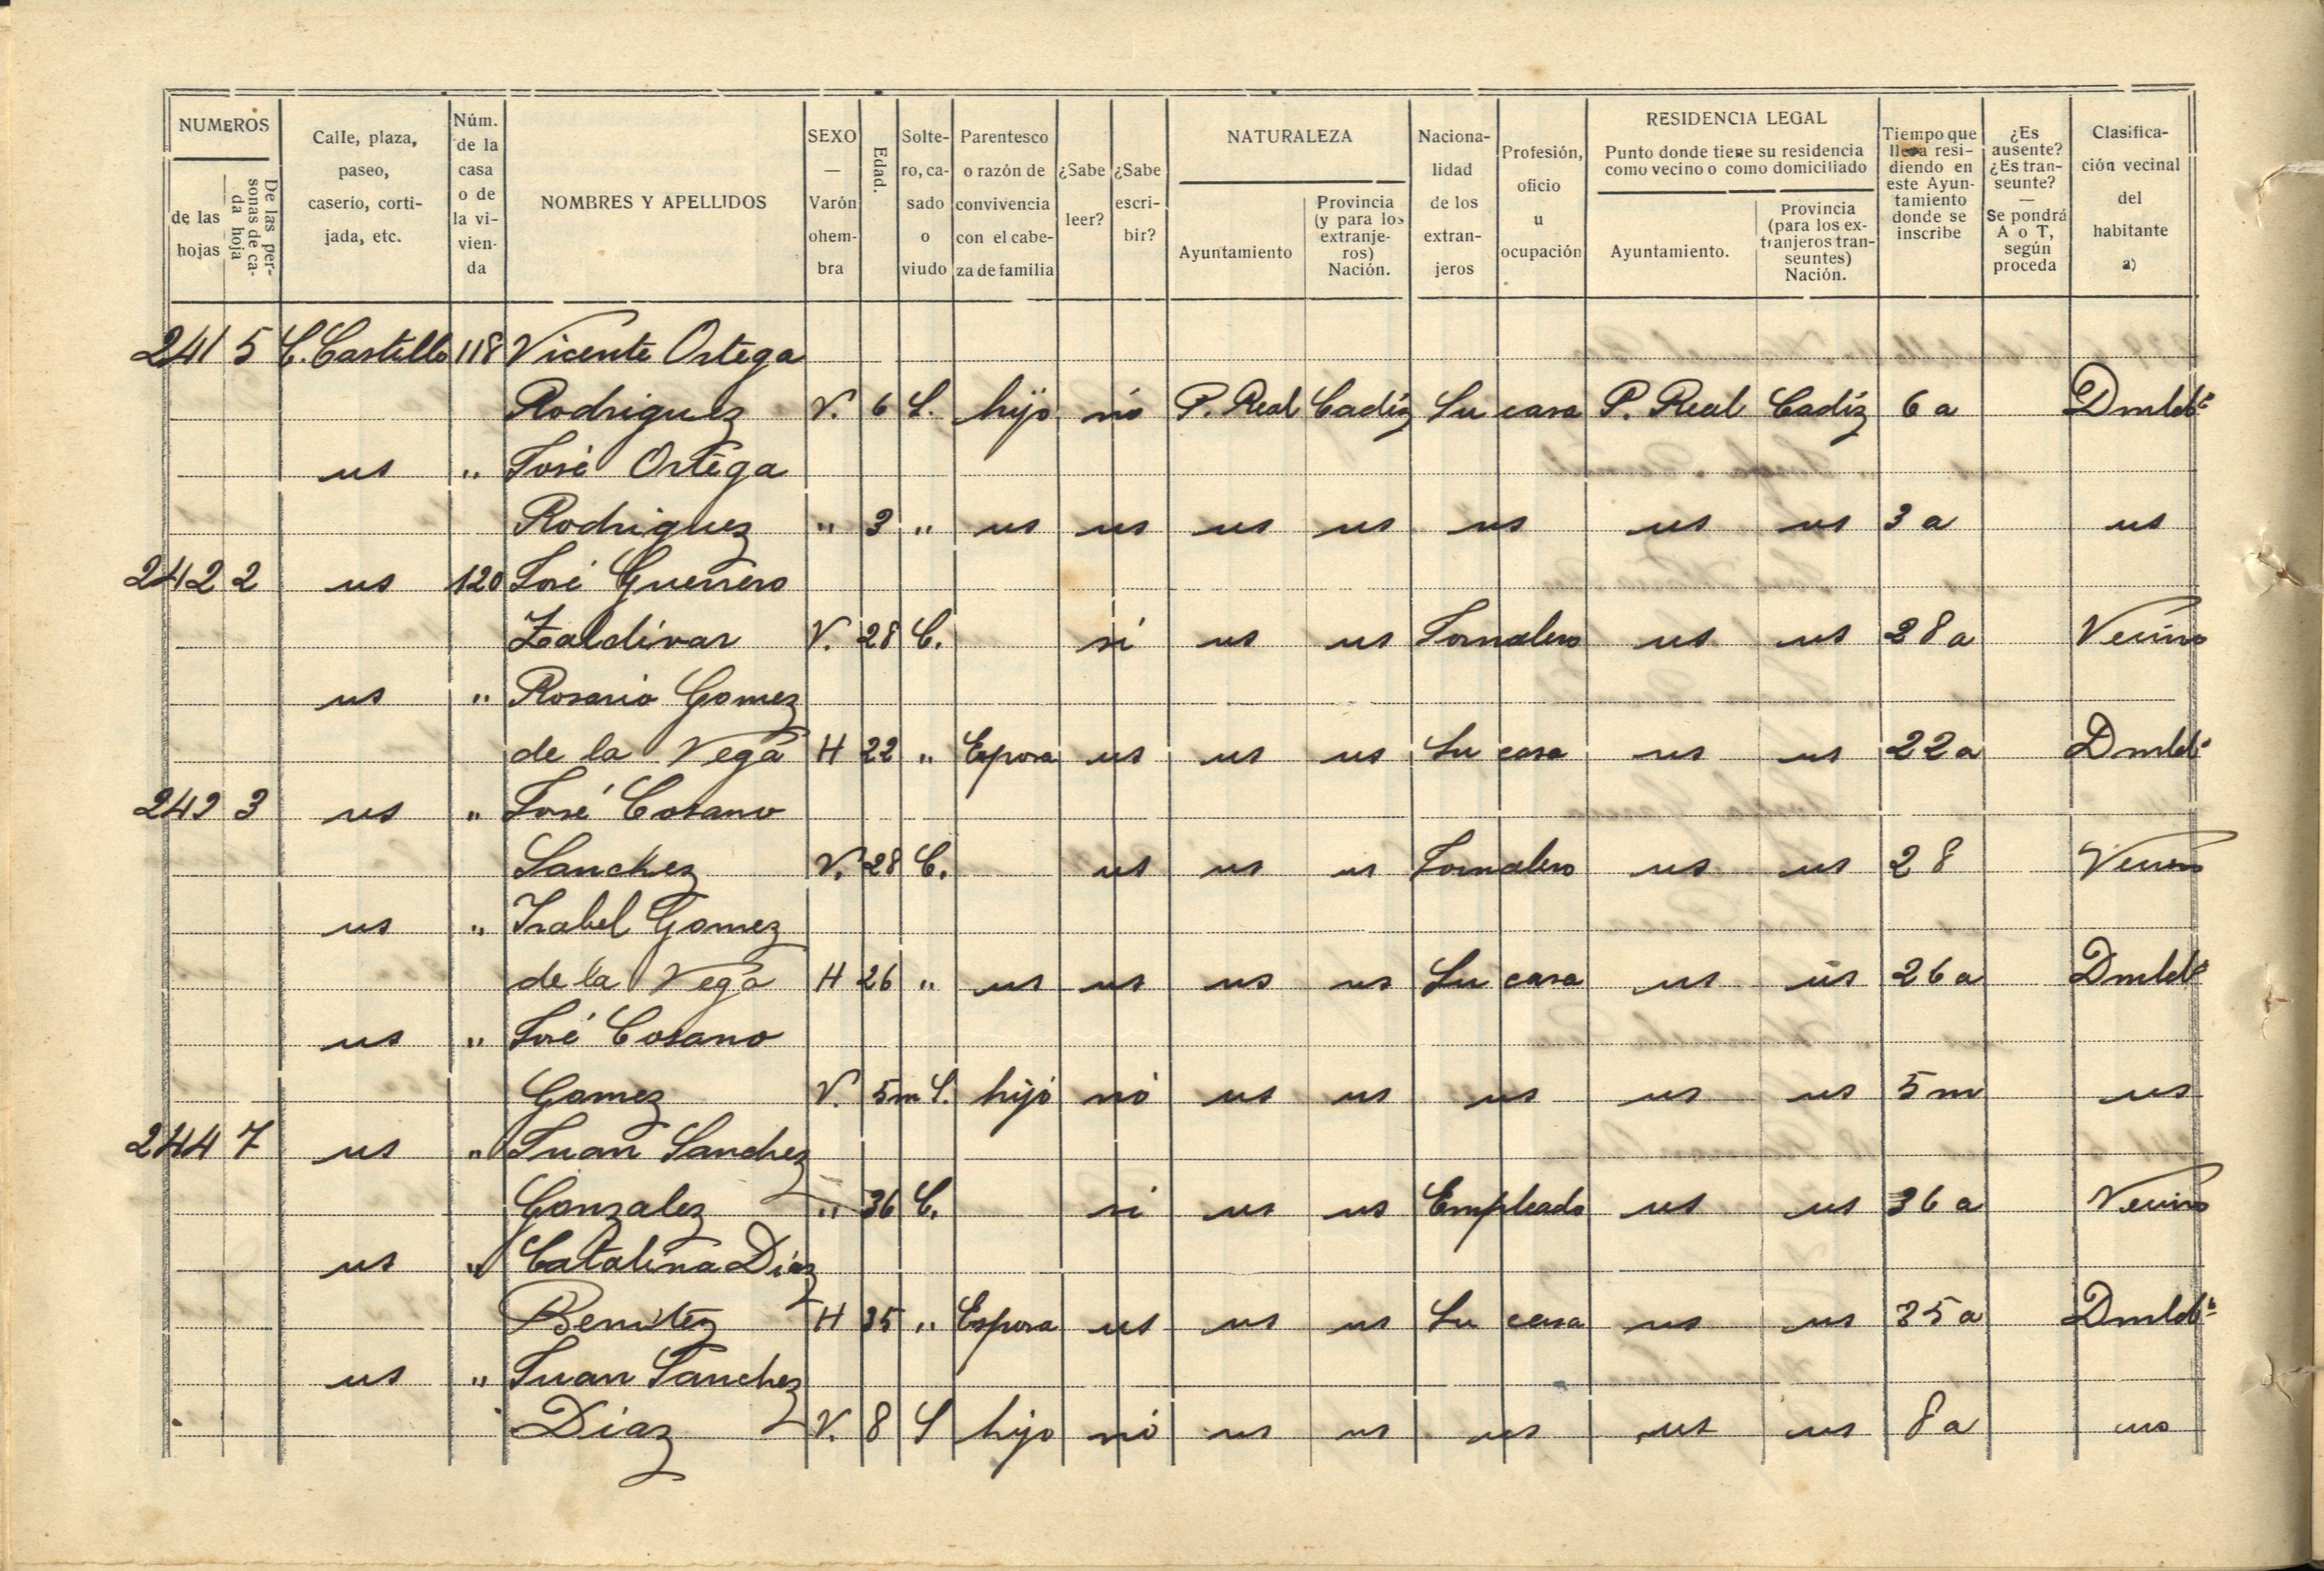 NUMEROS
de las hojas
De las personas de cada hoja
Calle, plaza, paseo, caserío, cortijada, etc.
Núm. de la casa o de la vivienda
NOMBRES Y APELLIDOS
SEXO — Varón o hembra
Edad.
Soltero, casado o viudo
Parentesco o razón de convivencia con el cabeza de familia
¿Sabe leer?
¿Sabe escribir?
NATURALEZA
Ayuntamiento
Provincia (y para los extranjeros) Nación.
Nacionalidad de los extranjeros
Profesión, oficio u ocupación
RESIDENCIA LEGAL
Punto donde tiene su residencia como vecino o como domiciliado
Ayuntamiento.
Provincia (para los extranjeros transeuntes) Nación.
Tiempo que lleva residiendo en este Ayuntamiento donde se inscribe
¿Es ausente? ¿Es transeunte? — Se pondrá A o T, según proceda
Clasificación vecinal del habitante a)
241 5 C. Castillo 118 Vicente Ortega
Rodriguez V. 6 S. hijo no P. Real Cadiz Su casa P. Real Cadiz 6 a Dmldº
us " José Ortega
Rodriguez " 3 " us us us us us us us 3 a us
242 2 us 120 José Guerrero
Zaldivar V. 28 C. si us us Jornalero us us 28 a Vecino
us " Rosario Gomez
de la Vega H 22 " Esposa us us us Su casa us us 22 a Dmldº
243 3 us " José Cosano
Sanchez V. 28 C. us us us Jornalero us us 28 Vecino
us " Isabel Gomez
de la Vega H 26 " us us us us Su casa us us 26 a Dmldº
us " José Cosano
Gomez V. 5m S. hijo no us us us us us 5 m us
244 7 us " Juan Sanchez
Gonzalez " 36 C. si us us Empleado us us 36 a Vecino
us " Catalina Diaz
Benitez H 35 " Esposa us us us Su casa us us 35 a Dmldº
us " Juan Sanchez
Diaz V. 8 S hijo no us us us us us 8 a us